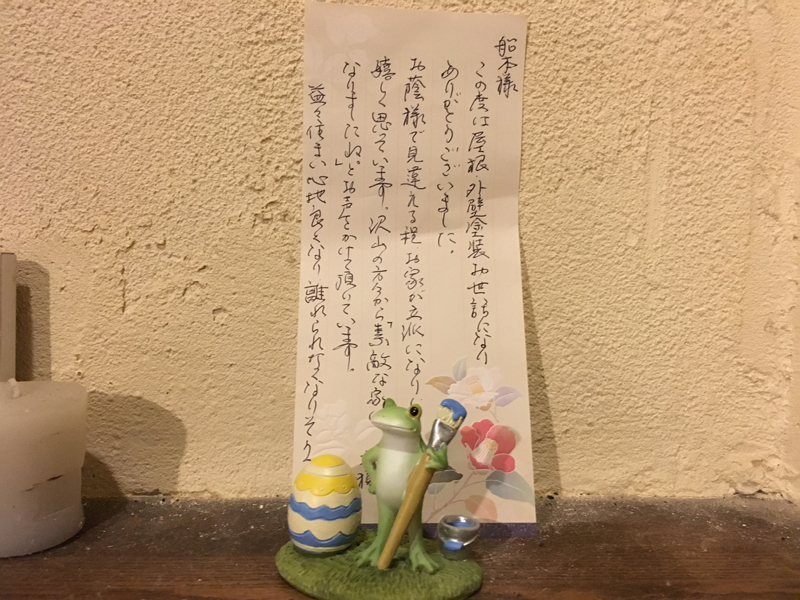 船木様
この度は屋根・外壁塗装お世話になり
ありがとうございました。
お蔭様で見違える程お家が立派になり
嬉しく思っています。沢山の方々から「素敵な家に
なりましたね。」とお声をかけて頂いています。
益々住まい心地良くなり離れられなくなりそう